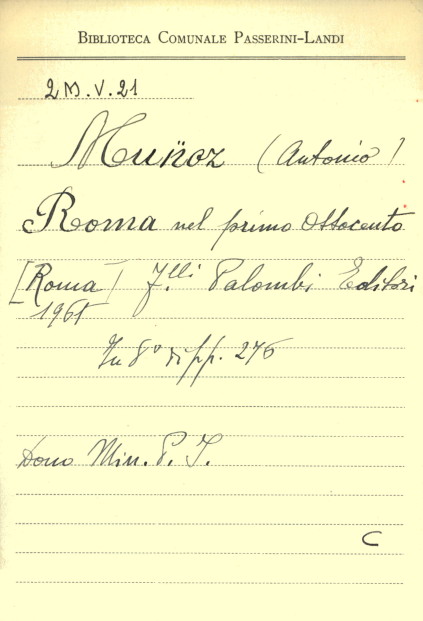 BIBLIOTECA COMUNALE PASSERINI-LANDI
2 M. V. 21
Muñoz (Antonio)
Roma nel primo Ottocento
[Roma] F.lli Palombi Editori
1961
In 8° di pp. 276
Dono Min. P. I.
C